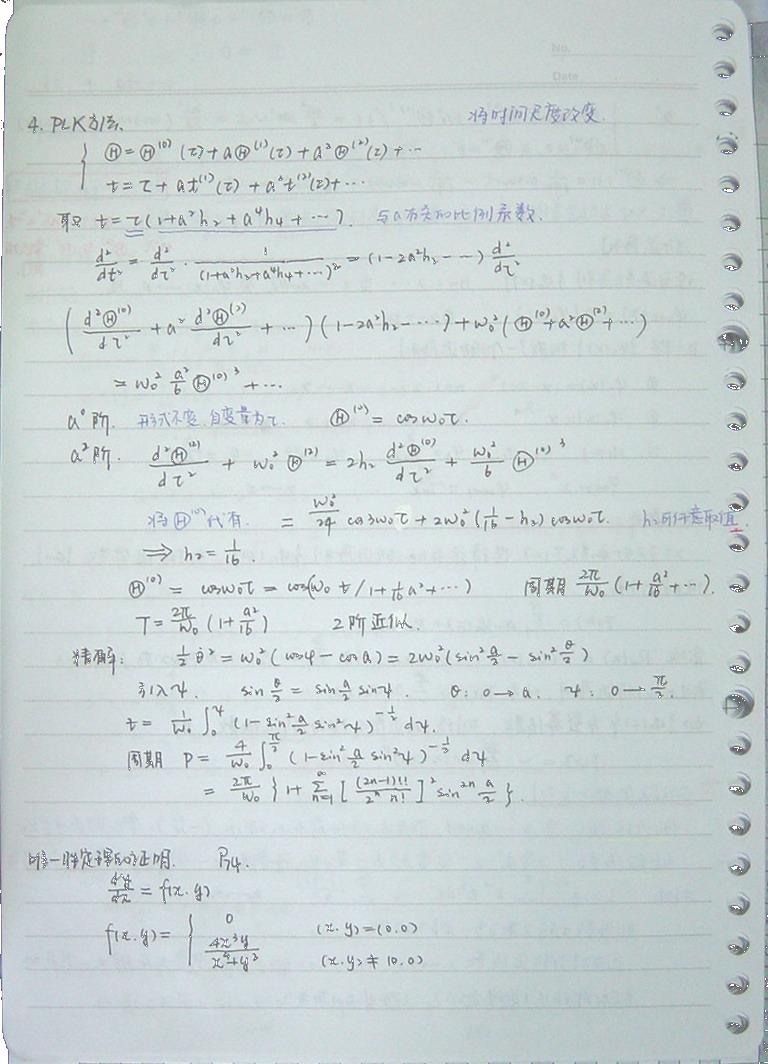 No.
Date
4. PLK方法. 将时间尺度改变.
Θ = Θ⁽⁰⁾(τ) + aΘ⁽¹⁾(τ) + a²Θ⁽²⁾(τ) + ⋯
t = τ + at⁽¹⁾(τ) + a²t⁽²⁾(τ) + ⋯
取 t = τ(1+a²h₂+a⁴h₄+⋯). 与a有关的比例系数.
d²/dt² = d²/dτ² · 1/(1+a²h₂+a⁴h₄+⋯)² = (1-2a²h₂-⋯) d²/dτ²
(d²Θ⁽⁰⁾/dτ² + a² d²Θ⁽²⁾/dτ² + ⋯)(1-2a²h₂-⋯) + ω₀²(Θ⁽⁰⁾+a²Θ⁽²⁾+⋯)
= ω₀² a²/6 Θ⁽⁰⁾³ + ⋯
a⁰阶. 形式不变,自变量为τ. Θ⁽⁰⁾ = cosω₀τ.
a²阶. d²Θ⁽²⁾/dτ² + ω₀²Θ⁽²⁾ = 2h₂ d²Θ⁽⁰⁾/dτ² + ω₀²/6 Θ⁽⁰⁾³
将Θ⁽⁰⁾代有. = ω₀²/24 cos3ω₀τ + 2ω₀²(1/16 - h₂)cosω₀τ. h₂可任意取值.
⟹ h₂ = 1/16.
Θ⁽⁰⁾ = cosω₀τ = cos(ω₀t/1+1/16a²+⋯) 周期 2π/ω₀(1+a²/16+⋯).
T = 2π/ω₀(1+a²/16) 2阶近似.
精解: ½θ̇² = ω₀²(cosφ - cosa) = 2ω₀²(sin²a/2 - sin²θ/2)
引入ψ. sinθ/2 = sina/2 sinψ. θ: 0→a. ψ: 0→π/2.
t = 1/ω₀ ∫₀^ψ (1-sin²a/2 sin²ψ)^(-1/2) dψ.
周期 P = 4/ω₀ ∫₀^(π/2) (1-sin²a/2 sin²ψ)^(-1/2) dψ
= 2π/ω₀ {1+ ∑ₙ₌₁^∞ [(2n-1)!!/2ⁿn!]² sin²ⁿ a/2}.
唯一性定理的证明. P₇₄.
dy/dx = f(x.y)
f(x.y) = { 0 (x.y)=(0.0)
4x³y/x⁴+y² (x.y)≠(0.0)